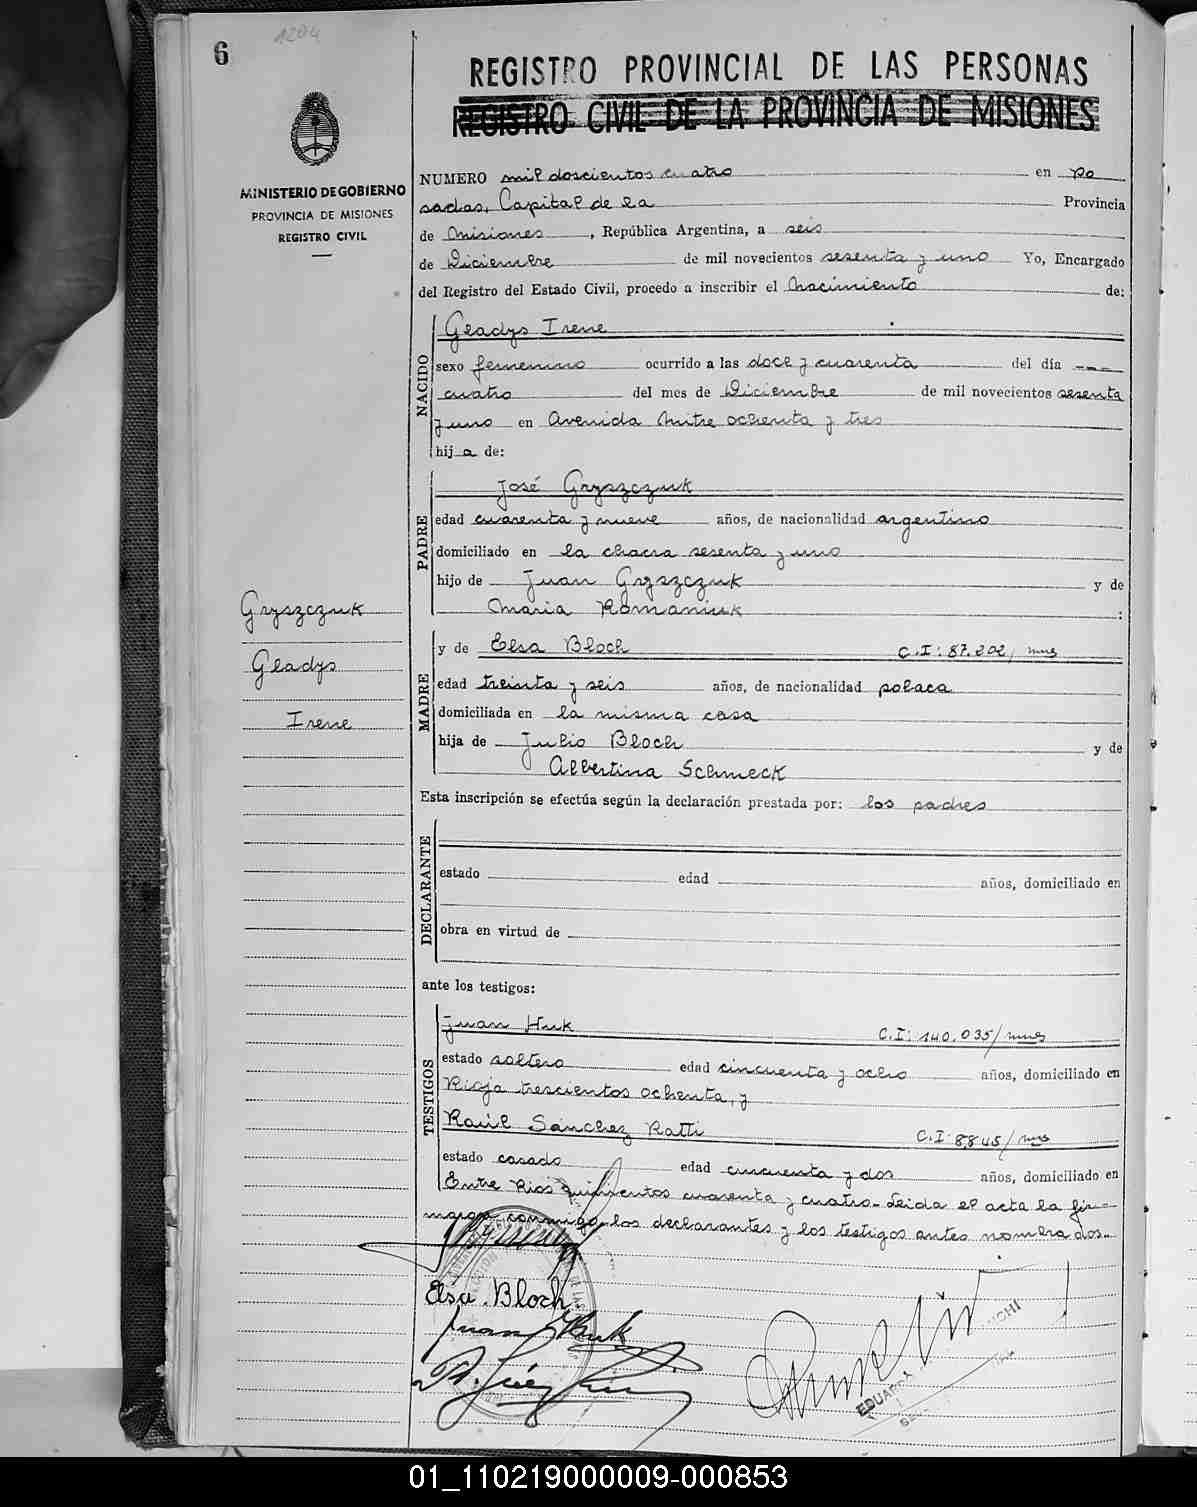 6
1204
REGISTRO PROVINCIAL DE LAS PERSONAS
REGISTRO CIVIL DE LA PROVINCIA DE MISIONES
MINISTERIO DE GOBIERNO
PROVINCIA DE MISIONES
REGISTRO CIVIL
NUMERO mil doscientos cuatro en Po
sadas, Capital de la Provincia
de Misiones, República Argentina, a seis
de Diciembre de mil novecientos sesenta y uno Yo, Encargado
del Registro del Estado Civil, procedo a inscribir el Nacimiento de:
NACIDO
Gladys Irene
sexo femenino ocurrido a las doce y cuarenta del día ---
cuatro del mes de Diciembre de mil novecientos sesenta
y uno en Avenida Mitre ochenta y tres
hija de:
PADRE
José Gryszczuk
edad cuarenta y nueve años, de nacionalidad argentino
domiciliado en la chacra sesenta y uno
hijo de Juan Gryszczuk y de
Maria Romaniuk :
Gryszczuk
Gladys
Irene
MADRE
y de Elsa Bloch C.I: 87.202/ mnes
edad treinta y seis años, de nacionalidad polaca
domiciliada en la misma casa
hija de Julio Bloch y de
Albertina Schmeck
Esta inscripción se efectúa según la declaración prestada por: los padres
DECLARANTE
estado edad años, domiciliado en
obra en virtud de
ante los testigos:
TESTIGOS
Juan Huk C.I: 140.035/ mnes
estado soltero edad cincuenta y ocho años, domiciliado en
Rioja trescientos ochenta, y
Raúl Sánchez Ratti C.I: 8845/ mnes
estado casado edad cincuenta y dos años, domiciliado en
Entre Rios quinientos cuarenta y cuatro. Leida el acta la fir-
maron conmigo los declarantes y los testigos antes nombrados.-
Elsa Bloch
Juan Huk
01_110219000009-000853